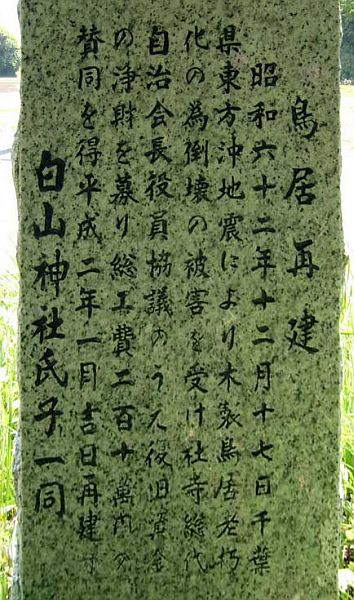 鳥居再建
昭和六十二年十二月十七日千葉
県東方沖地震により木製鳥居老朽
化の為倒壊の被害を受け社寺総代
自治会長役員協議のうえ復旧資金
の浄財を募り総工費二百十萬円
賛同を得平成二年一月吉日再建す
白山神社氏子一同